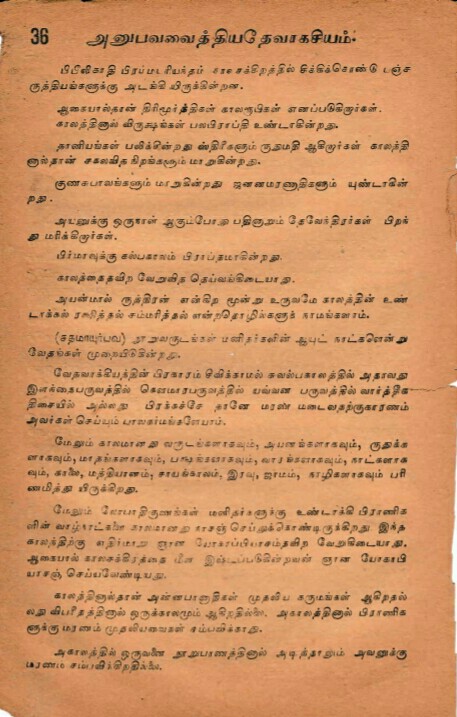 36 அனுபவவைத்தியதேவாகசியம்.
பிபீலிகாதி பிரம்மபரியந்தம் காலசக்கிரத்தில் சிக்கிக்கொண்டு பஞ்ச
ருத்தியங்களுக்கு அடங்கி யிருக்கின்றன.
ஆகையால்தான் திரிமூர்த்திகள் காலரூபிகள் எனப்படுகிறார்கள்.
காலத்தினால் விருக்ஷங்கள் பலபிராப்தி உண்டாகின்றது.
தானியங்கள் பலிக்கின்றது ஸ்திரீகளும் ருதுமதி ஆகிறார்கள் காலத்தி
னால்தான் சகலவித நிறங்களும் மாறுகின்றது.
குணசுபாவங்களும் மாறுகின்றது ஜனனமரணாதிகளும் யுண்டாகின்
றது.
அயனுக்கு ஒருநாள் ஆகும்போது பதினாறும் தேவேந்திரர்கள் பிறக்
து மரிக்கிறார்கள்.
பிர்மாவுக்கு கல்பகாலம் பிராப்தமாகின்றது.
காலத்தைதவிற வேறுவித தெய்வங்கிடையாது.
அயன்மால் ருத்திரன் என்கிற மூன்று உருவமே காலத்தின் உண்
டாக்கல் ரக்ஷித்தல் சம்மரித்தல் என்றதொழில்களுக் நாமங்களாம்.
(சதமாயுர்பவ) நூறுவருடங்கள் மனிதர்களின் ஆயுட் நாட்களென்று
வேதங்கள் முறையிடுகின்றது.
வேதவாக்கியத்தின் பிரகாரம் ஜீவிக்காமல் சுவல்பகாலத்தில் அதாவது
இளக்தைபருவத்தில் கௌமாரபருவத்தில் யவ்வன பருவத்தில் வார்த்திக
திசையில் அல்லது பிரக்கச்சே தானே மரண மடைவதற்குகாரணம்
அவர்கள் செய்யும் பாவகர்மங்களேயாம்.
மேலும் காலமானது வருடங்களாகவும், அயனங்களாகவும், ருதுக்க
ளாகவும், மாதங்களாகவும், பக்ஷங்களாகவும், வாரங்களாகவும், நாட்களாக
வும், காலை, மத்தியானம், சாயங்காலம், இரவு, ஜாமம், நாழிகளாகவும் பரி
ணமித்து யிருக்கிறது.
மேலும் லோபாதிகுணங்கள் மனிதர்களுக்கு உண்டாக்கி பிராணிக
ளின் வாழ்நாட்களை காலமானது நாசஞ் செய்துக்கொண்டிருக்கிறது. இக்த
காலத்திற்கு எதிர்மாறு ஞான யோகாப்பியாசம்தவிற வேறுகிடையாது.
ஆகைபால் காலசக்கிரத்தை மீள இஷ்டப்படுகின்றவன் ஞான யோகாபி
யாசஞ் செய்யவேண்டியது.
காலத்தினால்தான் அன்னபானாதிகள் முதலிய கருமங்கள் ஆகிறதல்
லது விபரீதத்தினால் ஒருக்காலமும் ஆகிறதில்லை. அகாலத்தினால் பிராணி
ளுக்கு மரணம் முதலியவைகள் சம்பவிக்காது.
அகாலத்தில் ஒருவனை நூறுபாணத்தினால் அடித்தாலும் அவனுக்கு
மரணம் சம்பவிக்கிறதில்லை.